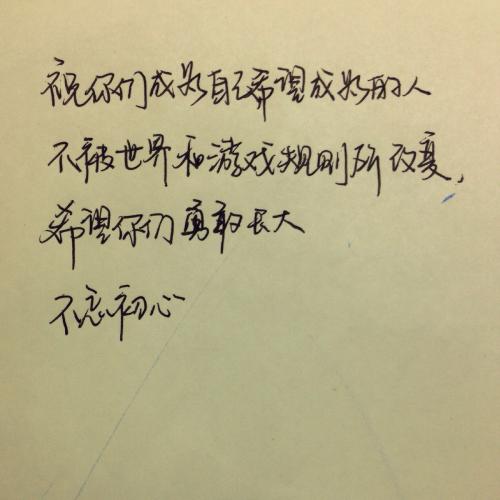 祝你们成为自己希望成为的人
不被世界和游戏规则所改变,
希望你们勇敢长大
不忘初心